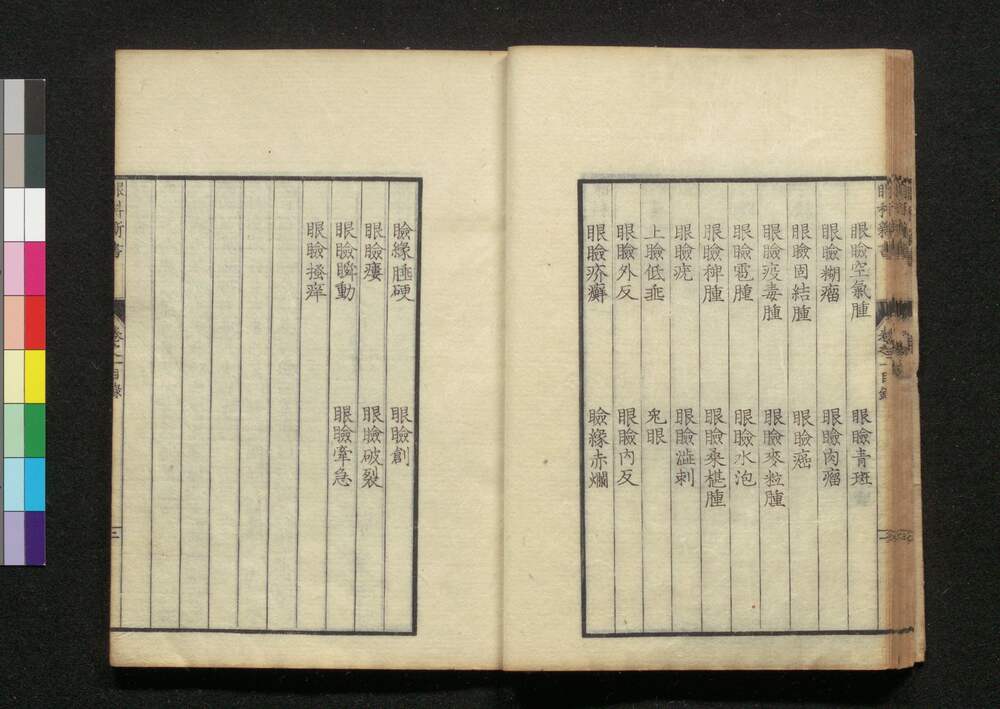 眼瞼空氣腫 眼瞼青斑
眼瞼糊瘤 眼瞼肉瘤
眼瞼固結腫 眼瞼癌
眼瞼疫毒腫 眼瞼麥粒腫
眼瞼雹腫 眼瞼水泡
眼瞼稗腫 眼瞼桑椹腫
眼瞼疣 眼瞼澁刺
上瞼低垂 兎眼
眼瞼外反 眼瞼内反
眼瞼疥癬 瞼緣赤爛
瞼緣腫硬 眼瞼創
眼瞼瘻 眼瞼破裂
眼瞼瞬動 眼瞼攣急
眼瞼搔痒
眼科新書 卷之一目錄 三